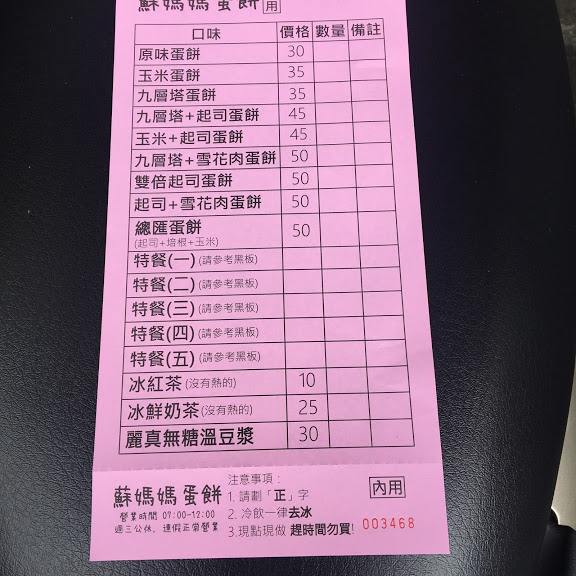 蘇媽媽蛋餅 用
口味 價格 數量 備註
原味蛋餅 30
玉米蛋餅 35
九層塔蛋餅 35
九層塔+起司蛋餅 45
玉米+起司蛋餅 45
九層塔+雪花肉蛋餅 50
雙倍起司蛋餅 50
起司+雪花肉蛋餅 50
總匯蛋餅 50
(起司+培根+玉米)
特餐(一)(請參考黑板)
特餐(二)(請參考黑板)
特餐(三)(請參考黑板)
特餐(四)(請參考黑板)
特餐(五)(請參考黑板)
冰紅茶(沒有熱的) 10
冰鮮奶茶(沒有熱的) 25
麗真無糖溫豆漿 30
蘇媽媽蛋餅
營業時間 07:00-12:00
週三公休，連假正常營業
注意事項：
1. 請劃「正」字
2. 冷飲一律去冰
3.現點現做 趕時間勿買!
內用
003468